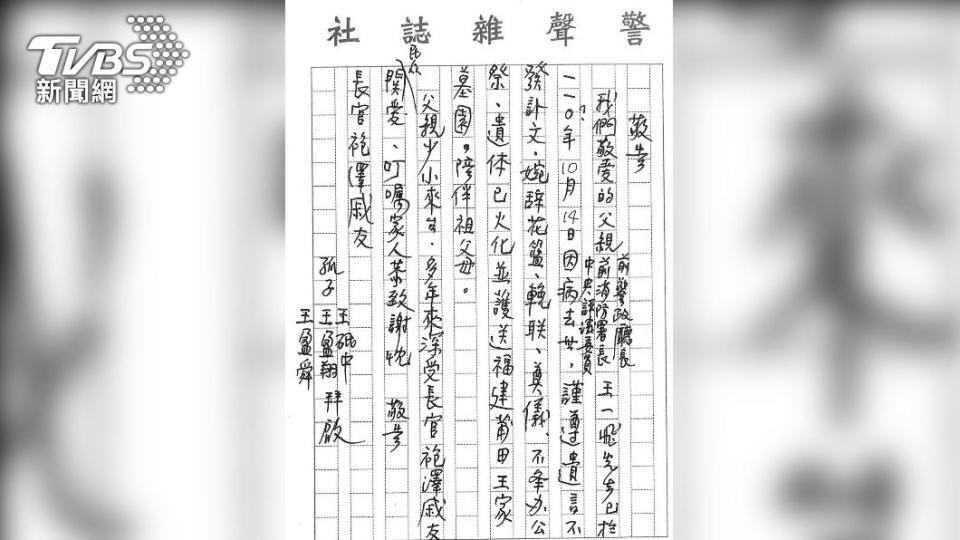 TVBS
新聞網
警聲雜誌社
敬告
我們敬愛的父親
前警政廳長
前消防署長
中央評議委員
王一飛先生已於
一一〇年10月14日因病去世，謹遵遺言不
發訃文，婉辭花籃、輓联、奠儀、不条办公
祭、遺体已火化並護送福建莆田王家
墓園。陪伴祖父母。
父親少小來台，多年來深受長官袍澤戚友
民众
関愛、叮囑家人恭致謝忱 敬告
長官袍澤戚友
孤子
王砥中
王盈翔
王盈舜
拜啟